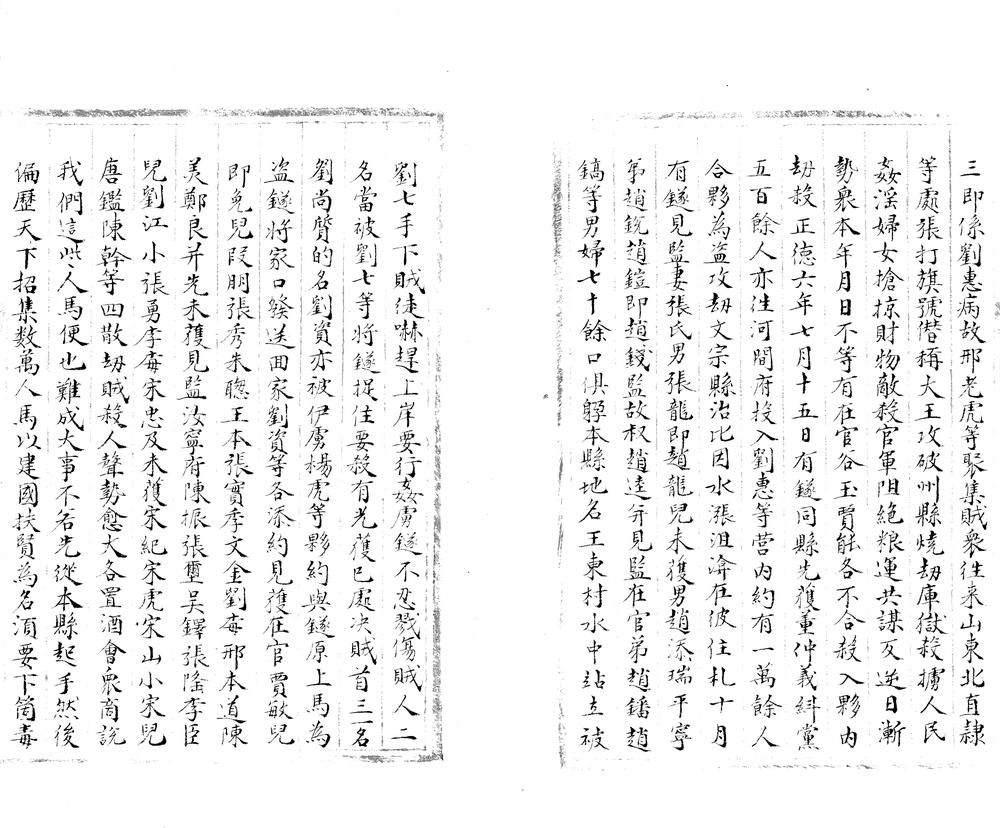 三即係劉惠病故邢老虎等聚集賊衆往来山東北直隷
等處張打旗號僣稱大王攻破州縣燒劫庫獄殺擄人民
姦淫婦女搶掠財物敵殺官軍阻絶粮運共謀反逆日漸
勢衆本年月日不等有在官谷玉賈能各不合投入夥内
劫殺正德六年七月十五日有鐩同縣先獲董仲義糾黨
五百餘人亦往河間府投入劉惠等营内約有一萬餘人
合夥為盗攻劫文宗縣治比因水漲沮滯在彼住札十月
有鐩見監妻張氏男張龍即趙龍兒未獲男趙添瑞平寧
弟趙銳趙鎧即趙錢監故叔趙逵并見監在官弟趙鐇趙
鎬等男婦七十餘口俱躱本縣地名王東村水中站立被
劉七手下賊徒嚇趕上岸要行姦虜鐩不忍戮傷賊人二
名當被劉七等將鐩捉住要殺有先獲已處决賊首三名
劉尚贋的名劉資亦被伊虜楊虎等夥約與鐩原上馬為
盗鐩將家口發送回家劉資等各添約見獲在官賈敏兒
即免兒段朋張秀朱聰王本張實李文金劉毐邢本道陳
美鄭良并先未獲見監汝寧府陳振張璽吴鐸張隆李臣
兒劉江小張勇李毐宋忠及未獲宋紀宋虎宋山小宋兒
唐鑑陳幹等四散劫賊殺人聲勢愈大各置酒會衆商説
我們這些人馬便也難成大事不若先從本縣起手然後
徧歷天下招集数萬人馬以建國扶賢為名湏要下箇毒